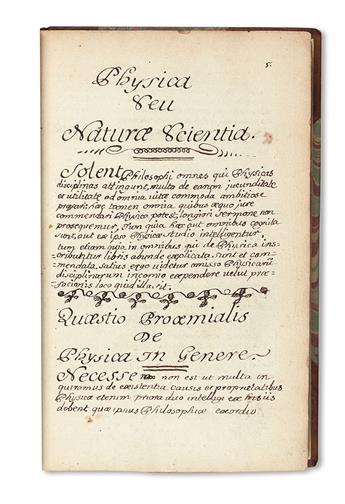 5.
Physica
Seu
Naturæ Scientia.
Solent Philosophi omnes qui Physicas
disciplinas attingunt, multo de earum jucunditate
et utilitate ad omnia vitæ commoda ambitiose
præfari: hæc tamen omnia quibus æquo jure
commendari Physica potest, longiori sermone non
prosequemur, tum quia hæc aut omnibus cognita
sunt, aut ex ipso Physicæ studio intelligentur,
tum etiam quia in omnibus qui de Physica ins=
cribuntur libris abunde explicata sunt et com=
mendata, satius ergo videtur omisso Physicarū
disciplinarum incomio expendere velut præ=
facionis loco quid illa sit.
Quæstio Proœmialis
De
Physica In Genere.
Necesse non est ut multa in
quiramus de existentia causis et proprietatibus
Physicæ etenim priora duo intelligi ex
debent quæ prius Philosophiæ exordio